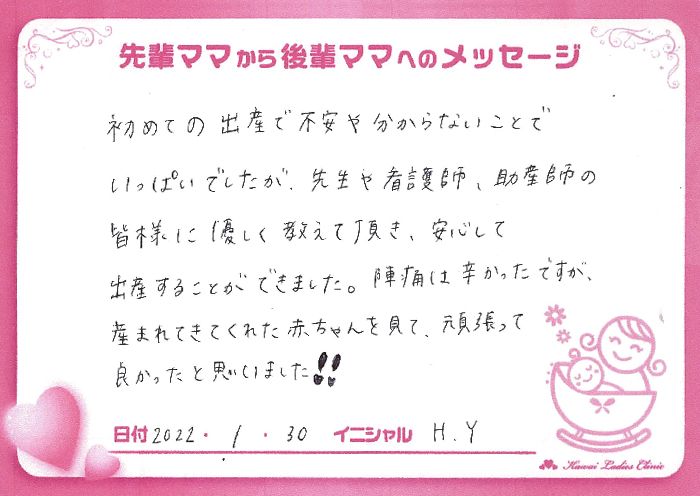 先輩ママから後輩ママへのメッセージ
初めての出産で不安や分からないことで
いっぱいでしたが、先生や看護師、助産師の
皆様に優しく教えて頂き、安心して
出産することができました。陣痛は辛かったですが、
産まれてきてくれた赤ちゃんを見て、頑張って
良かったと思いました!!
日付 2022・1・30 イニシャル H.Y
Kawai Ladies Clinic